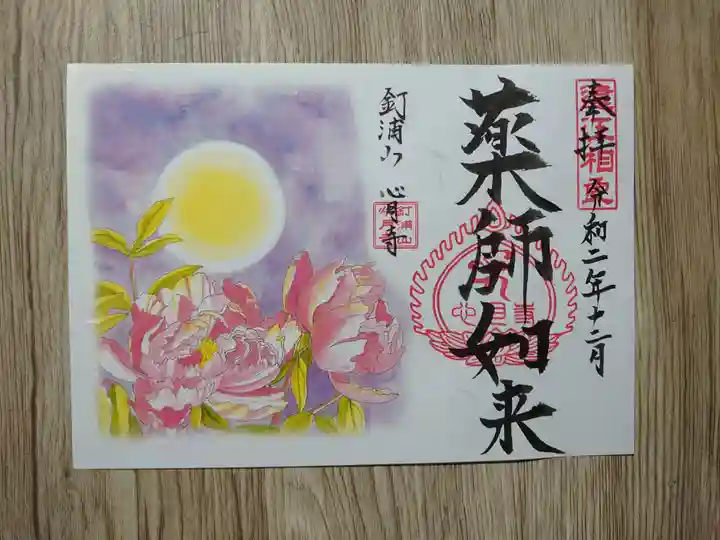 奉拝 令和二年十二月
薬師如来
釘浦山 心月寺
心月寺